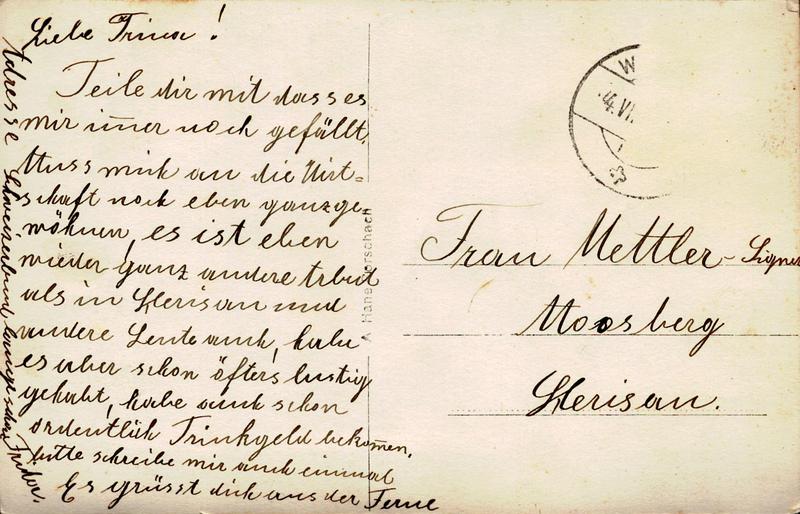 Liebe Trina!
Teile dir mit dass es
mir im̄er noch gefällt,
Muss mich an die Wirt=
schaft noch eben ganz ge
wöhnen, es ist eben
wieder ganz andere Arbeit
als in Herisau und
andere Leute auch, habe
es aber schon öfters lustig
gehabt, habe auch schon
ordentlich Trinkgeld bekom̄en,
bitte schreibe mir auch einmal
Es grüsst dich aus der Ferne
Frieda.
Adresse Schweizerbund
Frau Mettler-Signer
Moosberg
Herisau.
W
4.VI.